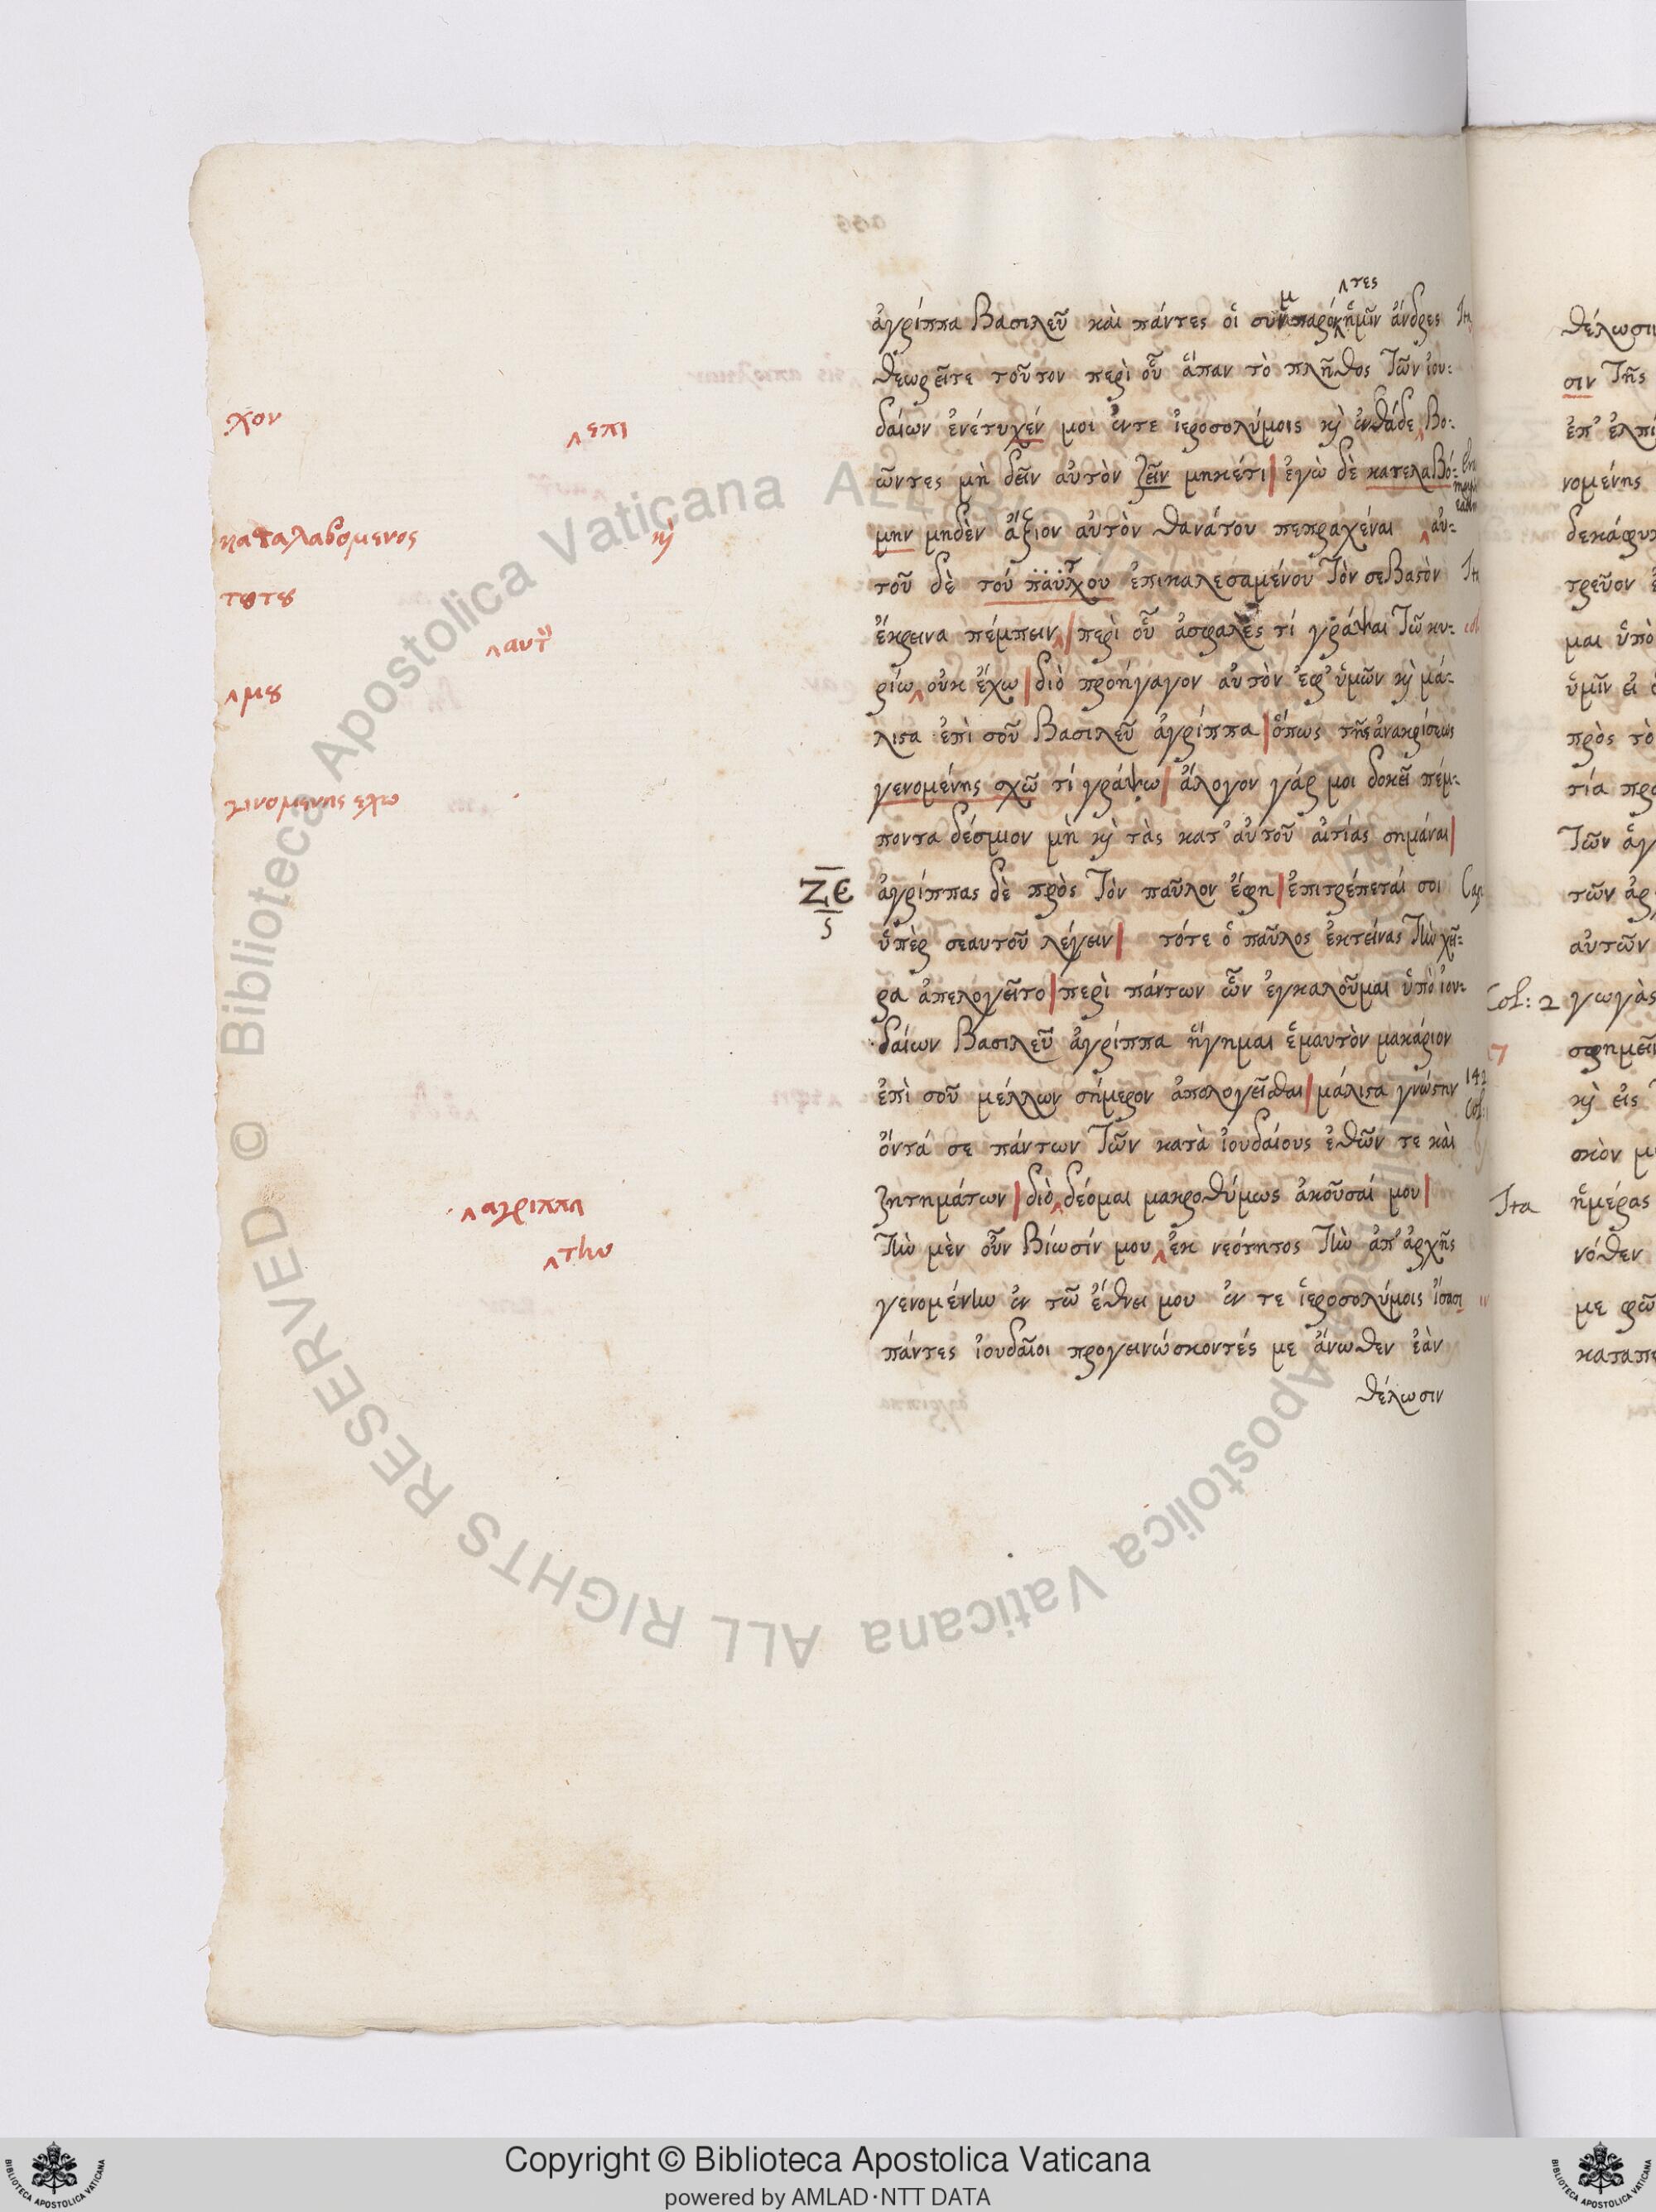 ἀγρίππα Βασιλεῦ καὶ πάντες οἱ συνπαρόντες ἡμῖν ἄνδρες
θεωρεῖτε τοῦτον περὶ οὗ ἅπαν τὸ πλῆθος τῶν ἰου-
δαίων ἐνέτυχέν μοι ἔν τε ἱεροσολύμοις κὶ ἐνθάδε Βο-
ῶντες μὴ δεῖν αὐτὸν ζεῖν μηκέτι| ἐγὼ δὲ κατελαβό-
μην μηδὲν ἄξιον αὐτὸν θανάτου πεπραχέναι αὐ-
τοῦ δὲ τού παύλου ἐπικαλεσαμένου τὸν σεβαστὸν
ἔκρεινα πέμπειν| περὶ οὗ ἀσφαλές τί γράψαι τῶ κυ-
ρίω οὐκ ἔχω| διὸ προήγαγον αὐτὸν ἐφ' ὑμῶν κὶ μά-
λιστα ἐπὶ σοῦ Βασιλεῦ ἀγρίππα| ὅπως τῆς ἀνακρίσεως
γενομένης σχῶ τί γράψω| ἄλογον γάρ μοι δοκεῖ πέμ-
ποντα δέσμιον μὴ κὶ τὰς κατ' αὐτοῦ αἰτίας σημάναι|
ἀγρίππας δὲ πρὸς τὸν παῦλον ἔφη| ἐπιτρέπεταί σοι
ὑπὲρ σεαυτοῦ λέγειν| τότε ὁ παῦλος ἐκτείνας τὴν χεῖ-
ρα ἀπελογεῖτο| περὶ πάντων ὧν ἐγκαλοῦμαι ὑπὸ ἰου-
δαίων Βασιλεῦ ἀγρίππα ἥγημαι ἐμαυτὸν μακάριον
ἐπὶ σοῦ μέλλων σήμερον ἀπολογεῖσθαι| μάλιστα γνώστην
ὄντά σε πάντων τῶν κατὰ ἰουδαίους ἐθῶν τε καὶ
ζητημάτων| διὸ δέομαι μακροθύμως ἀκοῦσαί μου|
τὴν μὲν οὖν Βίωσίν μου ἐκ νεότητος τὴν ἀπ' ἀρχῆς
γενομένην ἐν τῶ ἔθνει μου ἔν τε ἱεροσολύμοις ἴσασι
πάντες ἰουδαῖοι προγεινώσκοντές με ἄνωθεν ἐὰν
θέλωσιν
χον
^επι
καταλαβομενος
κὶ
τουτου
^αυτὸ
^μου
γινομενης εχω
ΖΕ
ς
^αγριππα
^την
θέλωσιν
σιν τῆς
νομένης
μαι ὑπὸ
ὑμῖν εἰ
πρὸς τὸ
τία
αὐτῶν
Col: 2 γωγὰς
κὶ εἰς
Ita ἡμέρας
νόθεν
με
Copyright © Biblioteca Apostolica Vaticana
powered by AMLAD·NTT DATA
© Biblioteca Apostolica Vaticana ALL RIGHTS RESERVED